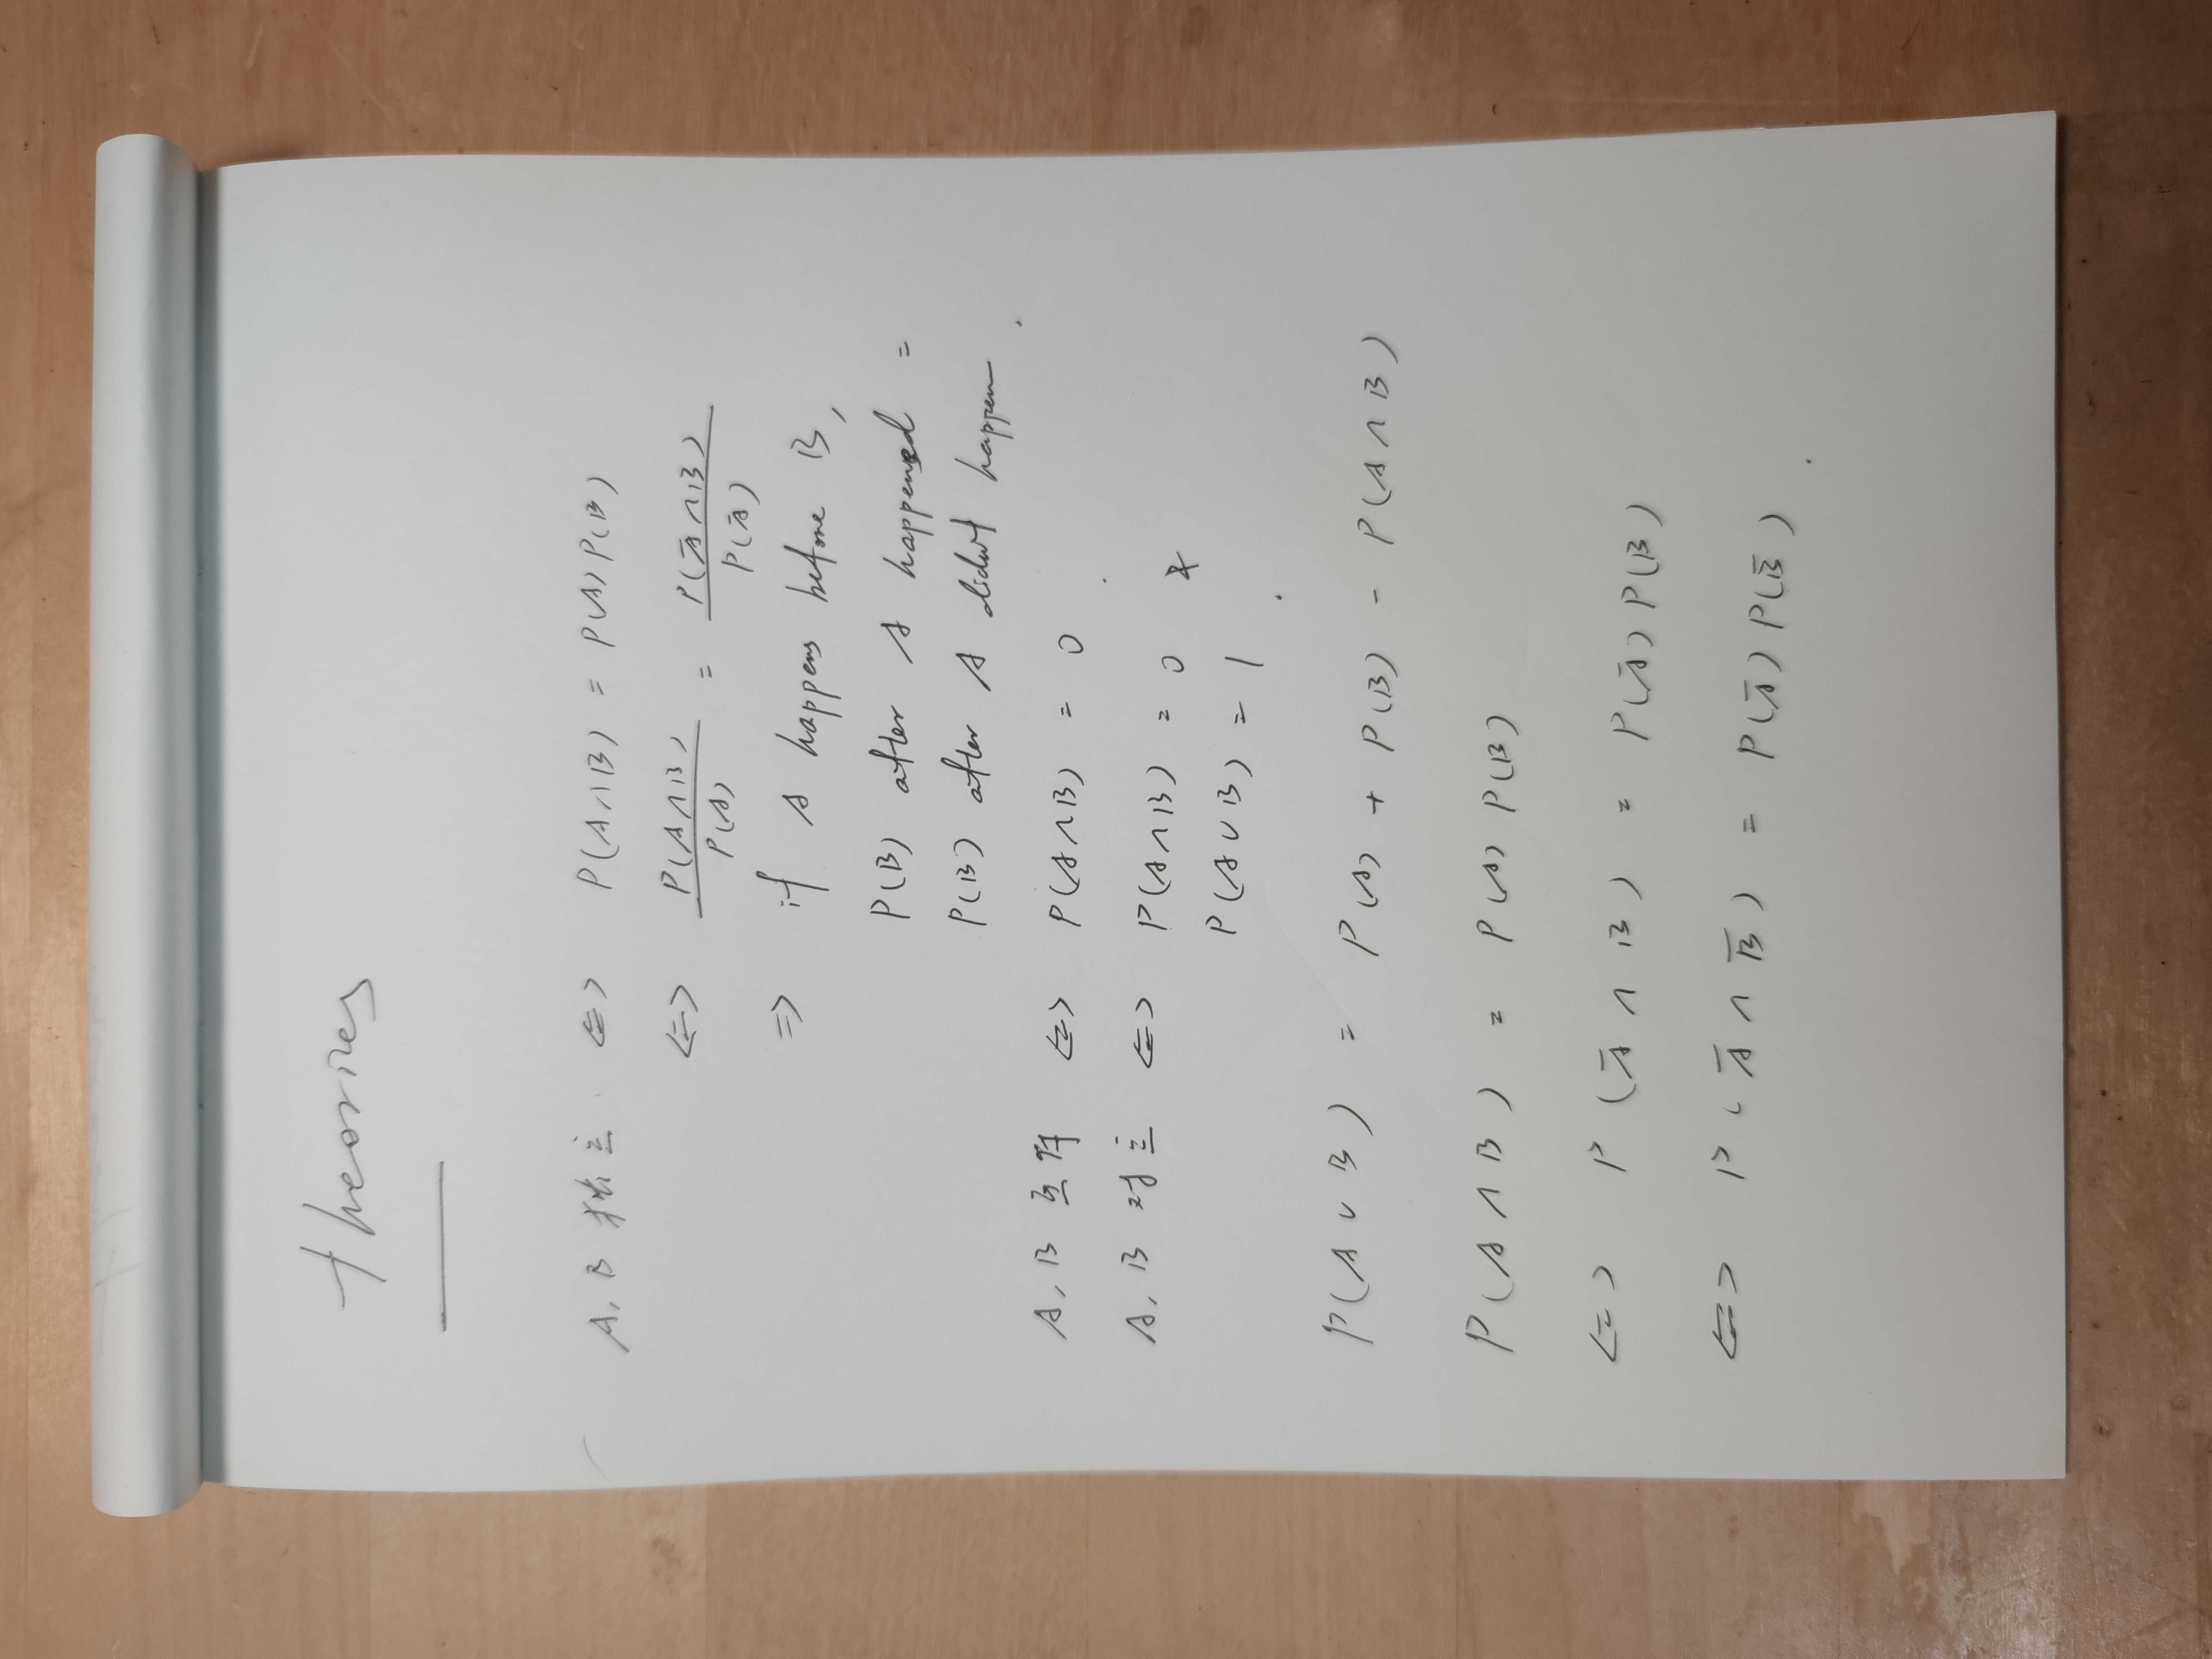 theories
A, B 独立 <=> P(A∩B) = P(A)P(B)
<=> P(A∩B)/P(A) = P(Ā∩B)/P(Ā)
=> if A happens before B,
P(B) after A happened =
P(B) after A didn't happen.
A, B 互斥 <=> P(A∩B) = 0.
A, B 对立 <=> P(A∩B) = 0 &
P(A∪B) = 1.
P(A∪B) = P(A) + P(B) - P(A∩B)
P(A∩B) = P(A)P(B)
<=> P(Ā∩B) = P(Ā)P(B)
<=> P(Ā∩B̄) = P(Ā)P(B̄).